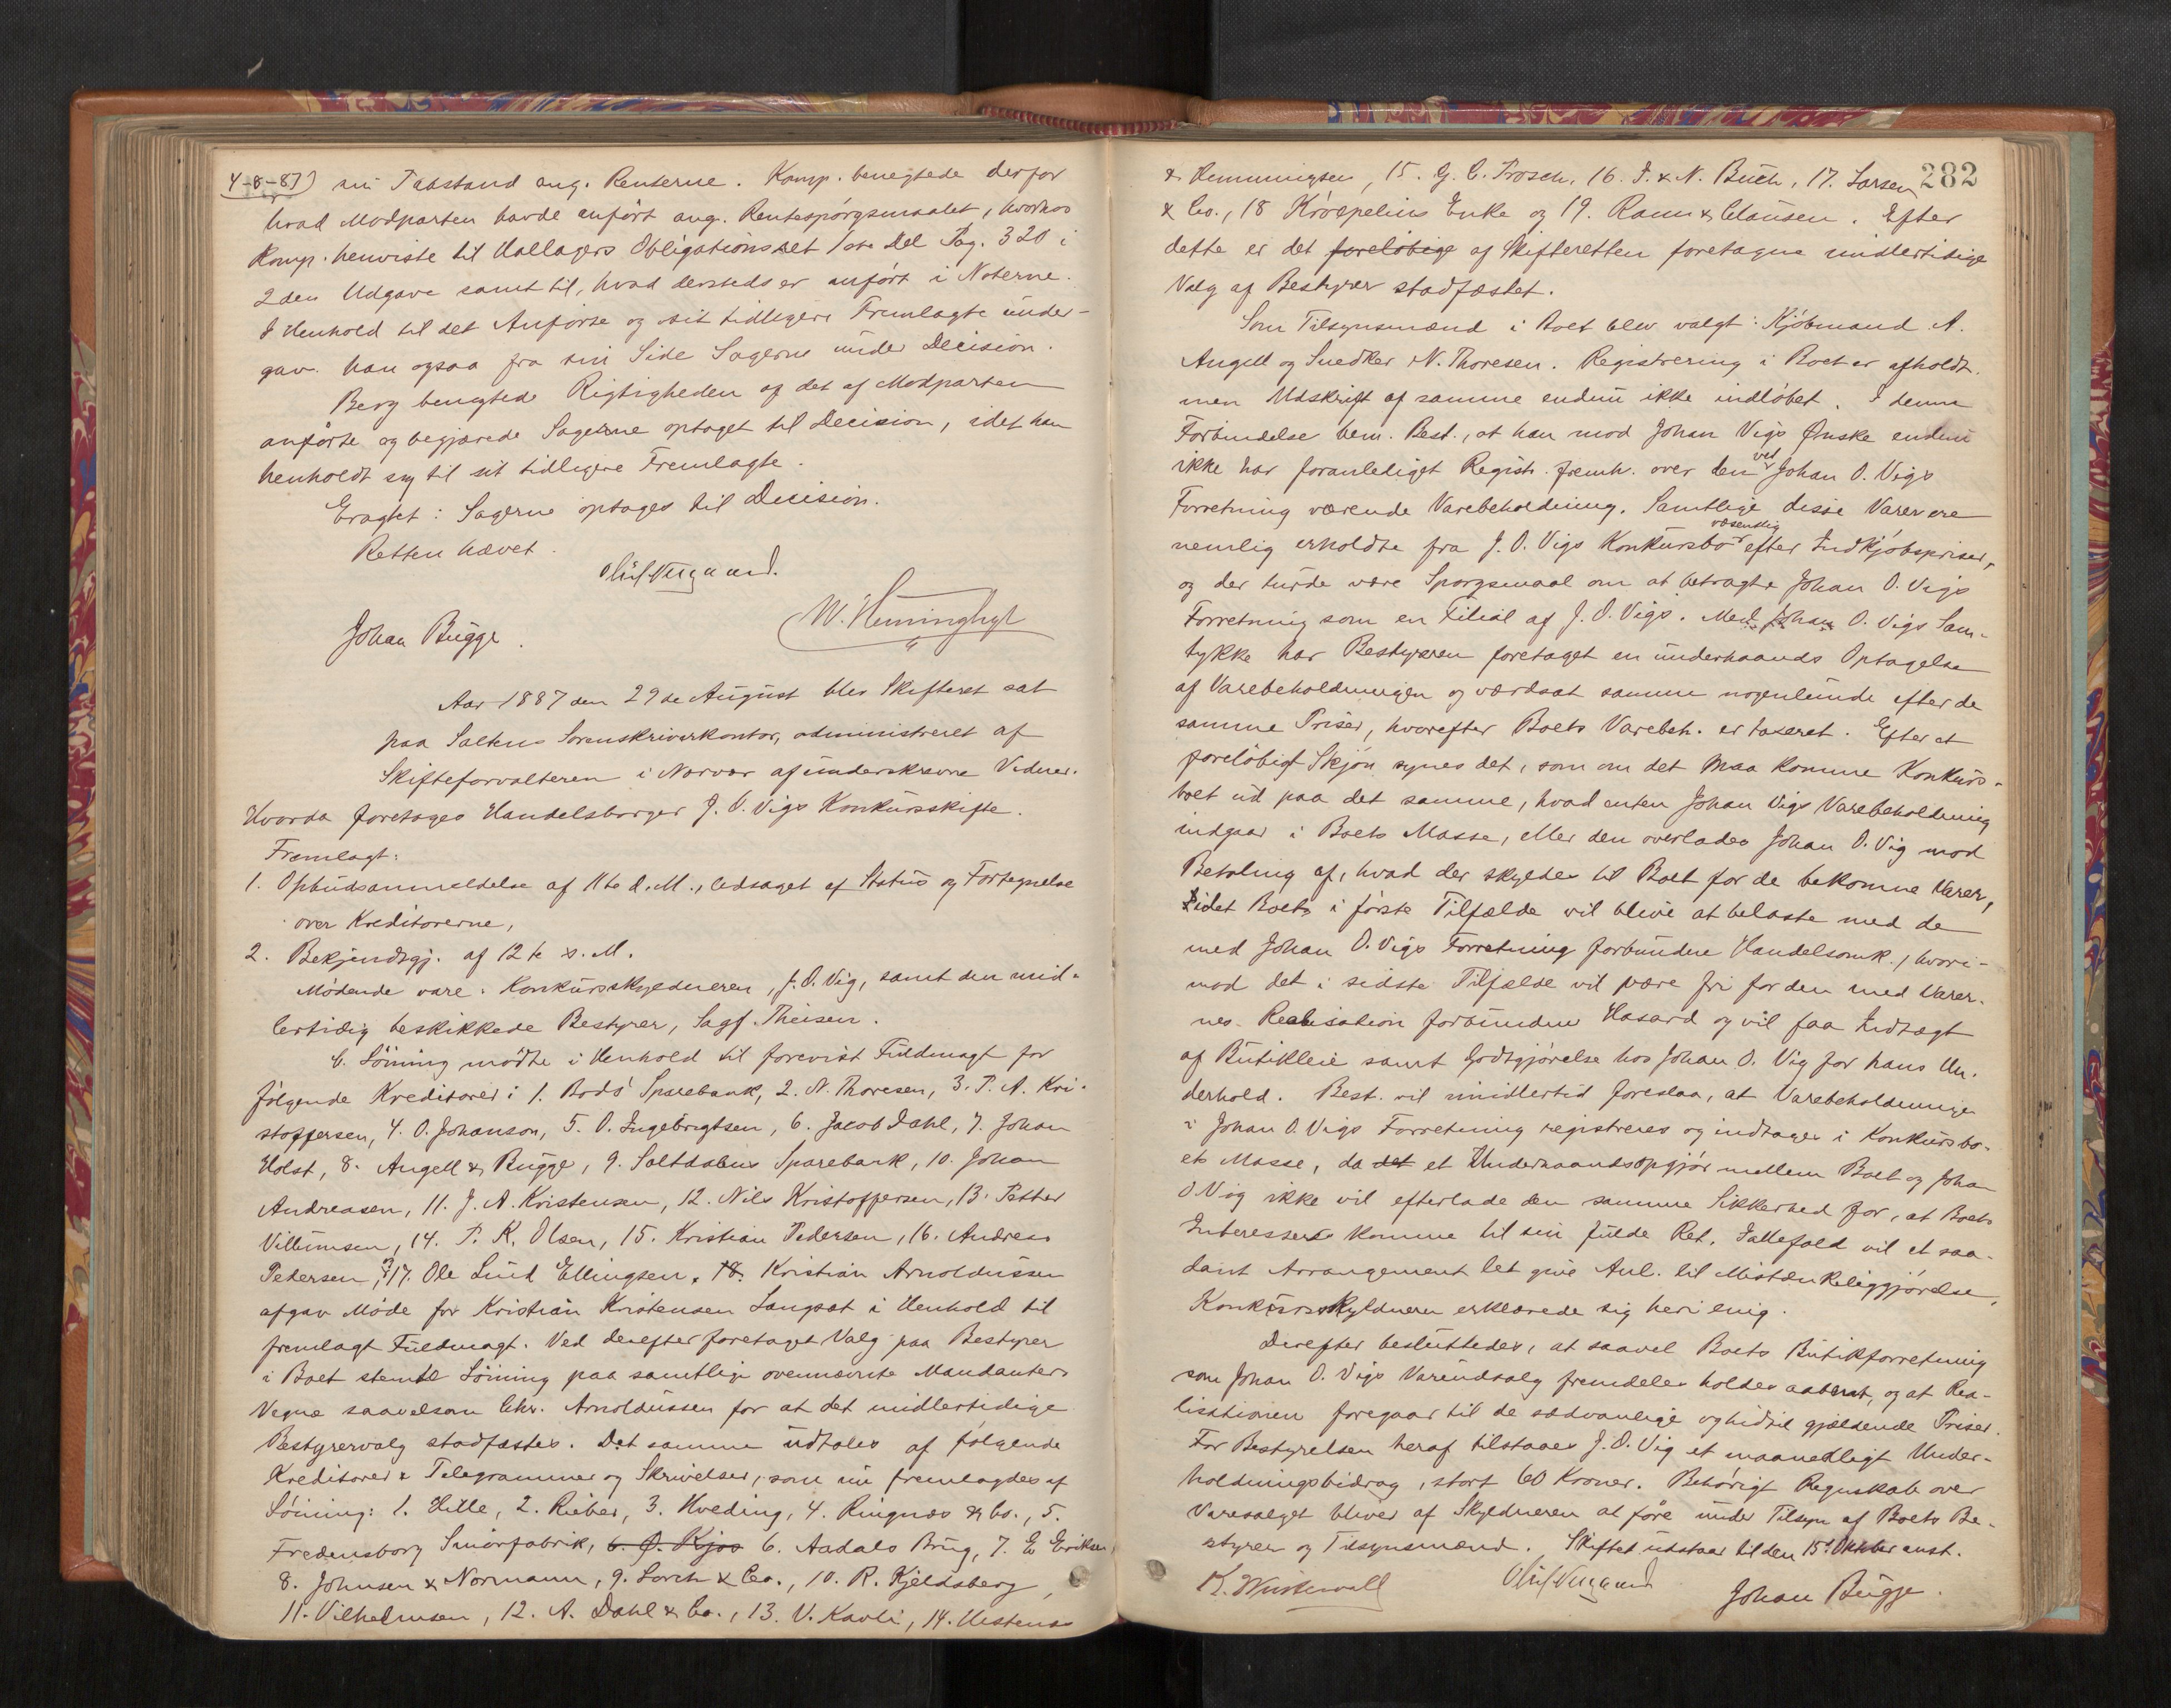 4-8-87) sin Paastand ang. Renterne. Komp. benegtede derfor
hvad Modparten havde anført ang. Rentespörgsmaalet, hvorhos
Komp. henviste til Hallagers Obligationsret 1ste Del Pag. 320 i
2den Udgave samt til, hvad dersteds er anført i Noterne.
I Henhold til det Anførte og sit tidligere Fremlagte under-
gav han ogsaa fra sin Side Sagerne under Decision.
Berg benegtede Rigtigheden af det af Modparten
anførte og begjærede Sagerne optaget til Decision, idet han
henholdt sig til sit tidligere Fremlagte.
Eragtet: Sagerne optages til Decision.
Retten hævet.
Johan Bugge.
Aar 1887 den 29de August blev Skifteret sat
paa Saltens Sorenskriverkontor, administreret af
Skifteforvalteren i Nærvær af underskrevne Vidner.
Hvorda foretoges Handelsborger J. O. Vigs Konkursskifte.
Fremlagt:
1. Opbudsanmeldelse af 11te d. M., ledsaget af Status og Fortegnelse
over Kreditorerne,
2. Bekjendtgj. af 12te s. M.
Mødende vare: Konkursskyldneren, J. O. Vig, samt den mid-
lertidig beskikkede Bestyrer, Sagf. Theisen.
C. Löining mødte i Henhold til forevist Fuldmagt for
følgende Kreditorer: 1. Bodö Sparebank, 2. N. Thoresen, 3. P. A. Kri-
stoffersen, 4. O. Johanson, 5. O. Ingebrigtsen, 6. Jacob Dahl, 7. Johan
Holst, 8. Angell & Bugge, 9. Saltdalens Sparebank, 10. Johan
Andreasen, 11. J. A. Kristensen, 12. Nils Kristoffersen, 13. Petter
Villumsen, 14. P. K. Olsen, 15. Kristian Pedersen, 16. Andreas
Petersen, 17. Ole Lund Ellingsen. 18. Kristian Arnoldussen
afgav Møde for Kristian Kristensen Langsat i Henhold til
fremlagt Fuldmagt. Ved derefter foretaget Valg paa Bestyrer
i Boet stemte Löining paa samtlige ovennævnte Mandanters
Vegne saavelsom Chr. Arnoldussen for at det midlertidige
Bestyrervalg stadfæstes. Det samme udtales af følgende
Kreditorer & Telegrammer og Skrivelser, som nu fremlagdes af
Löining: 1. Hille, 2. Rieber, 3. Hveding, 4. Ringnæs & Co., 5.
Fredensborg Smörfabrik, 6. O. Kjos 6. Aadals Brug, 7. E Eriksen
8. Johnsen & Normann, 9. Lorch & Co., 10. R. Kjeldsberg,
11. Vilhelmsen, 12. A. Dahl & Co., 13. V. Kavli, 14. Hestenes
282
& Hemmingsen, 15. G. C. Frosch, 16. I. & N. Buch, 17. Larsen
& Co., 18 Kröepeliens Enke og 19. Ramm & Clausen. Efter
dette er det foreløbige af Skifteretten foretagne midlertidige
Valg af Bestyrer stadfæstet.
Som Tilsynsmænd i Boet blev valgt: Kjöbmand A.
Angell og Snedker N. Thoresen. Registrering i Boet er afholdt.
men Udskrift af samme endnu ikke indlöbet. I denne
Forbindelse bem. Best., at han mod Johan Vigs Ønske endnu
ikke har foranlediget Registr. fremh. over den ved Johan O. Vigs
Forretning værende Varebeholdning. Samtlige disse Varer ere
nemlig erholdte fra J. O. Vigs Konkursbo væsentlig efter Indkjöbspriser,
og der turde være Spörgsmaal om at betragte Johan O. Vigs
Forretning som en Filial af J. O. Vigs. Med Johan O. Vigs Sam-
tykke har Bestyreren foretaget en underhaands Optagelse
af Varebeholdningen og værdsat samme nogenlunde efter de
samme Priser, hvorefter Boets Varebeh. er taxeret. Efter et
foreløbigt Skjön synes det, som om det maa komme Konkurs-
boet ud paa det samme, hvad enten Johan Vigs Varebeholdning
indgaar i Boets Masse, eller den overlades Johan O. Vig mod
Betaling af, hvad der skyldes til Boet for de bekomne Varer,
idet Boets i förste Tilfælde vil blive at belaste med de
med Johan O. Vigs Forretning forbundne Handelsomk., hvori-
mod det i sidste Tilfælde vil være fri for den med Varer-
nes Realisation forbundne Hasard og vil faa Indtægt
af Butikleie samt Godtgjörelse hos Johan O. Vig for hans Un-
derhold. Best. vil imidlertid foreslaa, at Varebeholdningen
i Johan O. Vigs Forretning registreres og indtages i Konkursbo-
ets Masse, da det et Underhaandsopgjör mellem Boet og Johan
O Vig ikke vil efterlade den samme Sikkerhed for, at Boets
Interesser komme til sin fulde Ret. Iallefald vil et saa-
dant Arrangement let give Anl. til Mistænkeliggjörelse.
Konkursskyldneren erklærede sig heri enig.
Derefter besluttedes, at saavel Boets Butikforretning
som Johan O. Vigs Vareudsalg fremdeles holdes aabent, og at Rea-
lisationen foregaar til de sædvanlige og hidtil gjældende Priser.
For Bestyrelsen heraf tilstaaes J. O. Vig et maanedligt Under-
holdningsbidrag, stort 60 Kroner. Behörigt Regnskab over
Varesalget bliver af Skyldneren at före under Tilsyn af Boets Be-
styrer og Tilsynsmænd. Skiftet udstaar til den 15de Oktober anst.
Johan Bugge.